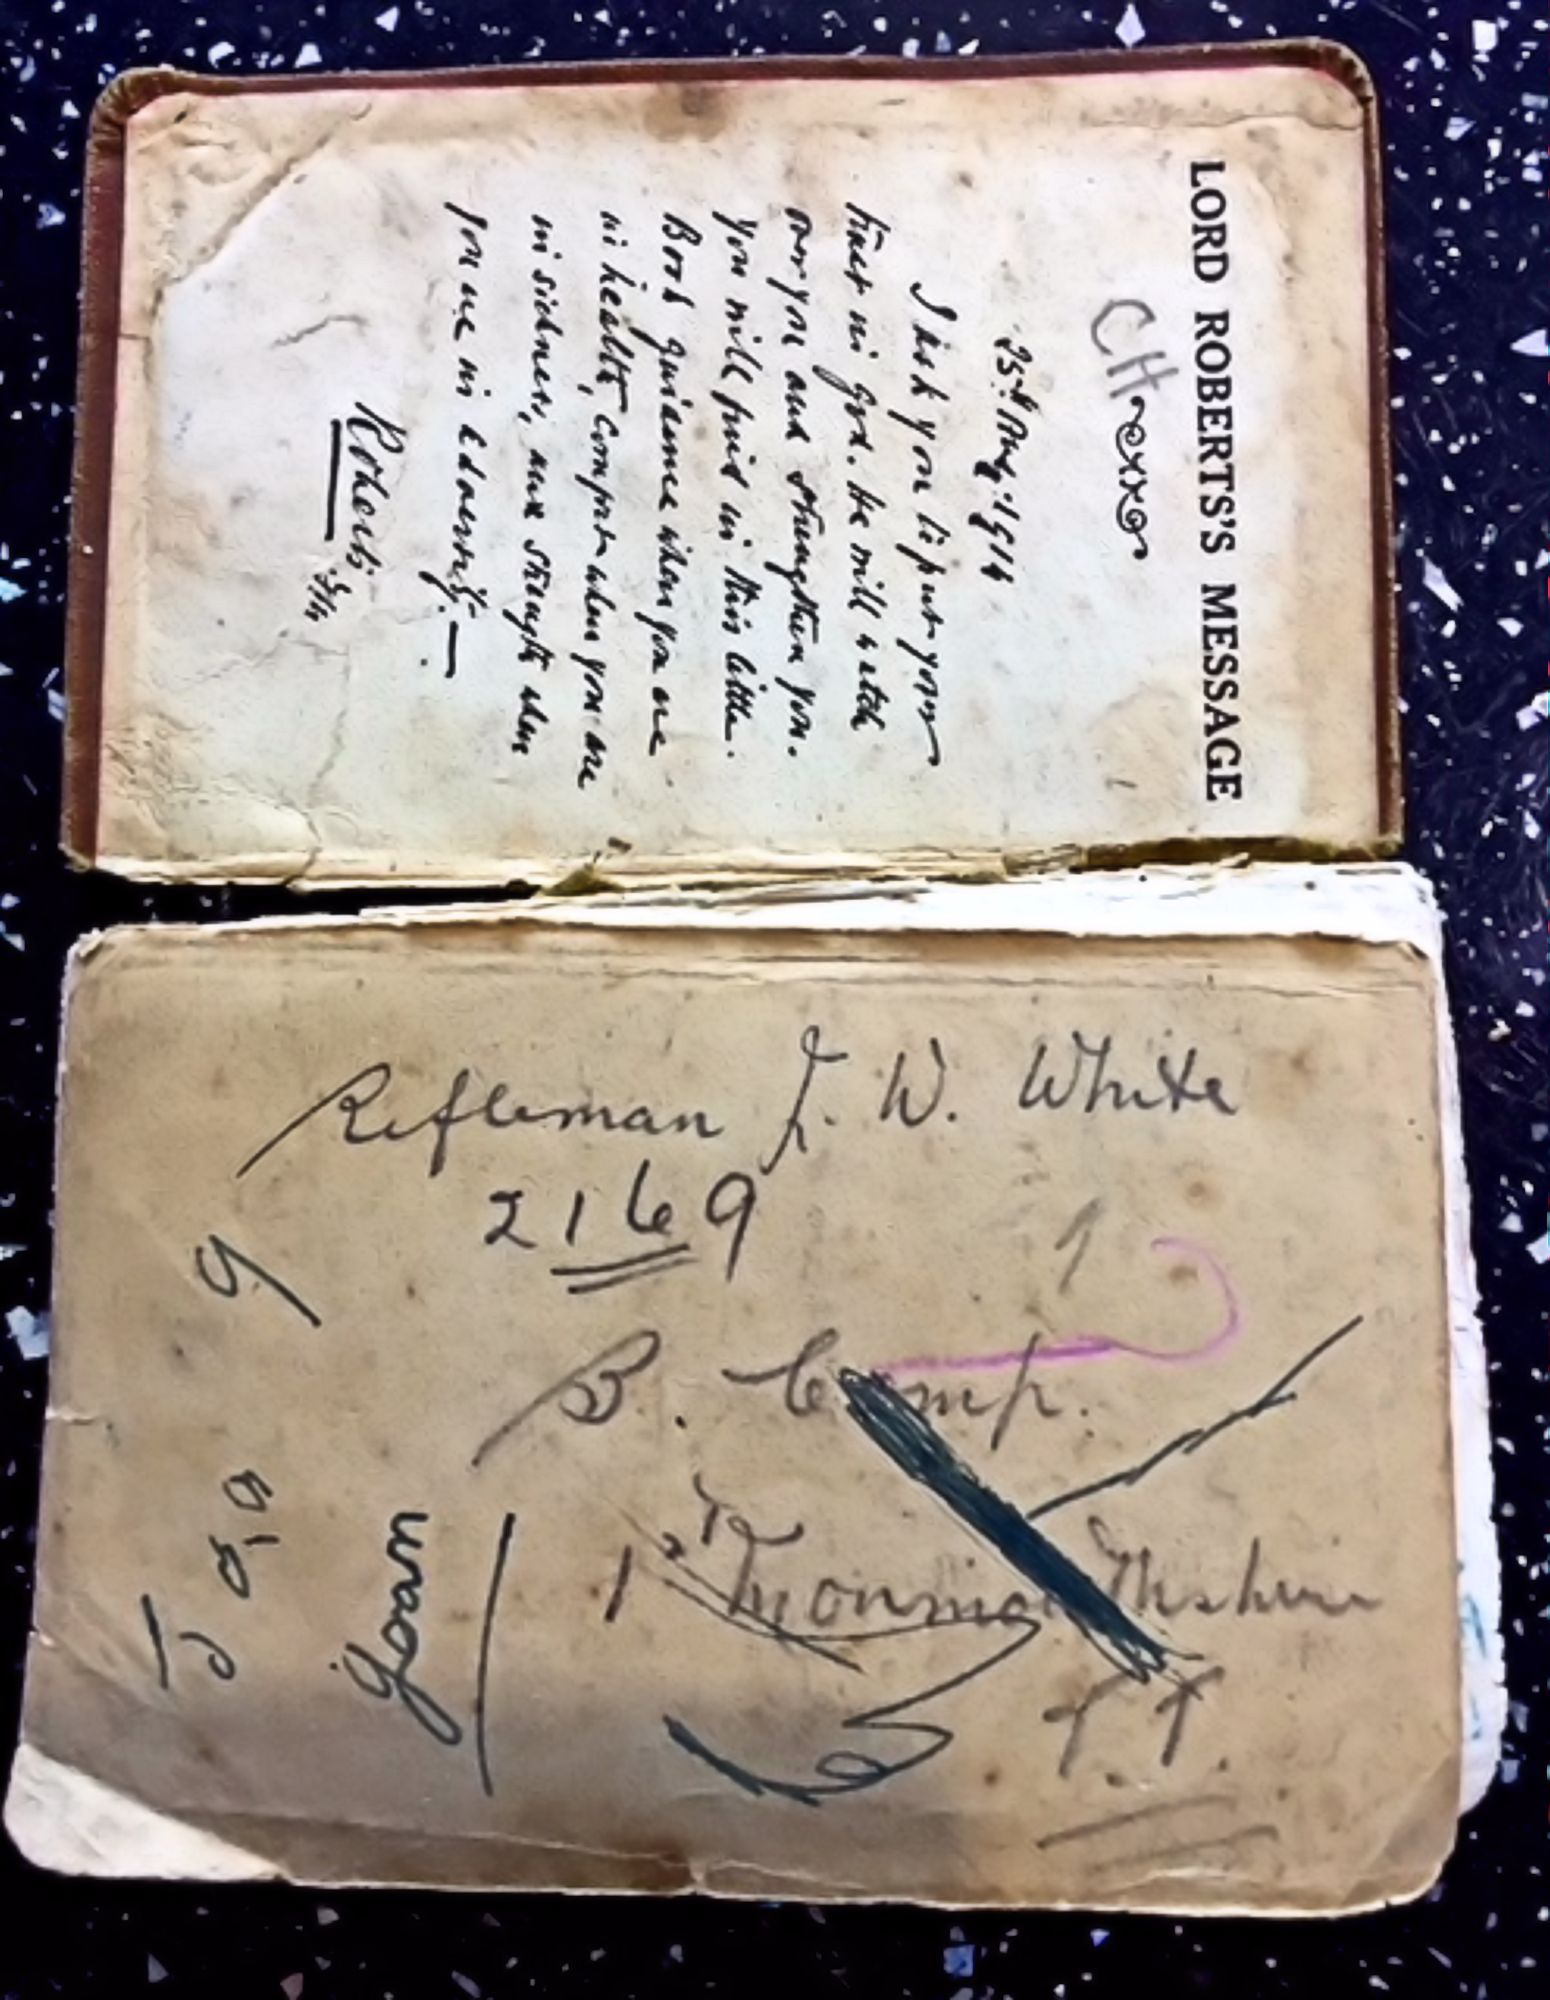 LORD ROBERTS'S MESSAGE
CH
25th Aug: 1914
I ask you to put your
trust in God. He will watch
over you and strengthen you.
You will find in this little
Book guidance when you are
in health, comfort when you are
in sickness, and strength when
you are in adversity. —
Roberts
Rifleman J. W. White
2169
B. Comp.
1 Monmouthshire
Joan